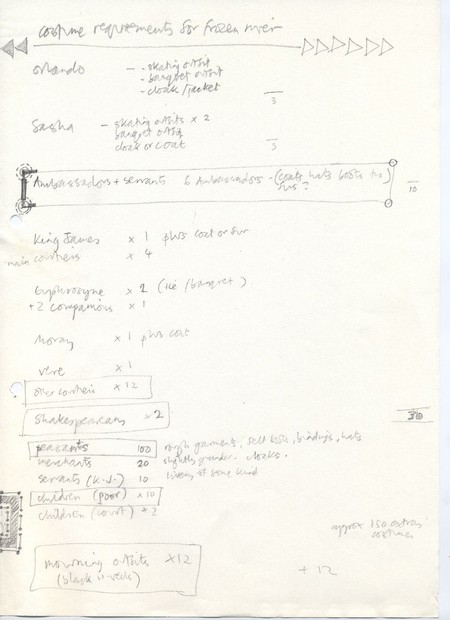 costume requirements for frozen river
Orlando — - skating outfit
- banquet outfit
- cloak/jacket
3
Sasha — skating outfits x 2
banquet outfit
cloak or coat
3
Ambassadors + servants 6 Ambassadors - (coats, hats boots
furs?
10
King James x 1 plus coat or fur
main courtiers x 4
Euphrosyne x 2 (ice/banquet)
+ 2 companions x 1
Moray x 1 plus coat
Vere x 1
other courtiers x 12
Shakespeareans x 2
30
peasants 100 rough garments, self boots, bindings, hats
merchants 20 slightly grander. cloaks.
servants (K.J.) 10 livery of some kind
children (poor) x 10
children (court) x 2
approx 150 extras
costumes
mourning outfits x 12
(black + veils)
+ 12